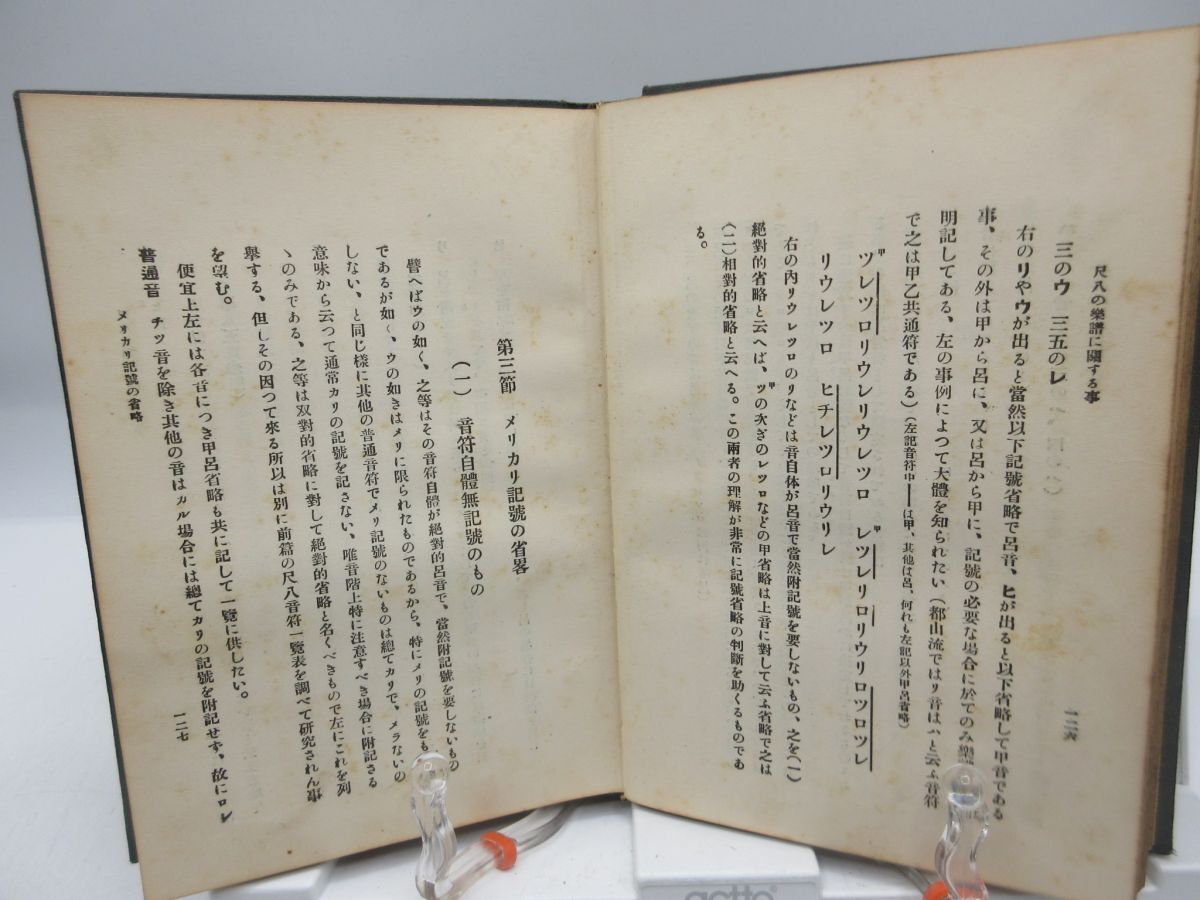 尺八の樂譜に關する事
一二六
三のウ 三五のレ
右のリやウが出ると當然以下記號省略で呂音、ヒが出ると以下省略して甲音である
事、その外は甲から呂に、又は呂から甲に、記號の必要な場合に於てのみ樂
明記してある、左の事例によつて大體を知られたい（都山流ではリ音はハと云ふ音符
で之は甲乙共通符である）（左記音符中━━は甲、其他は呂、何れも左記以外甲呂省略）
甲
ツレツロリウレリウレツロ レツレリロリウリロツロツレ
甲
リウレツロ ヒチレツロリウリレ
右の內リウレツロのリなどは音自体が呂音で當然附記號を要しないもの、之を（一）
絕對的省略と云へば、ツの次ぎのレツロなどの甲省略は上音に對して云ふ省略で之は
甲
（二）相對的省略と云へる。この兩者の理解が非常に記號省略の判斷を助くるものであ
る。
第三節 メリカリ記號の省畧
（一） 音符自體無記號のもの
譬へばウの如く、之等はその音符自體が絕對的呂音で、當然附記號を要しないもの
であるが如く、ウの如きはメリに限られたものであるから、特にメリの記號をも
しない、と同じ樣に其他の普通音符でメリ記號のないものは總てカリで、メラないの
意味から云つて通常カリの記號を記さない、唯音階上特に注意すべき場合に附記さる
ゝのみである、之等は双對的省略に對して絕對的省略と名くべきもので左にこれを列
擧する、但しその因つて來る所以は別に前篇の尺八音符一覽表を調べて研究されん事
を望む。
便宜上左には各音につき甲呂省略も共に記して一覽に供したい。
普通音 チツ音を除き其他の音はカル場合には總てカリの記號を附記せず、故にロレ
メリカリ記號の省略
一二七